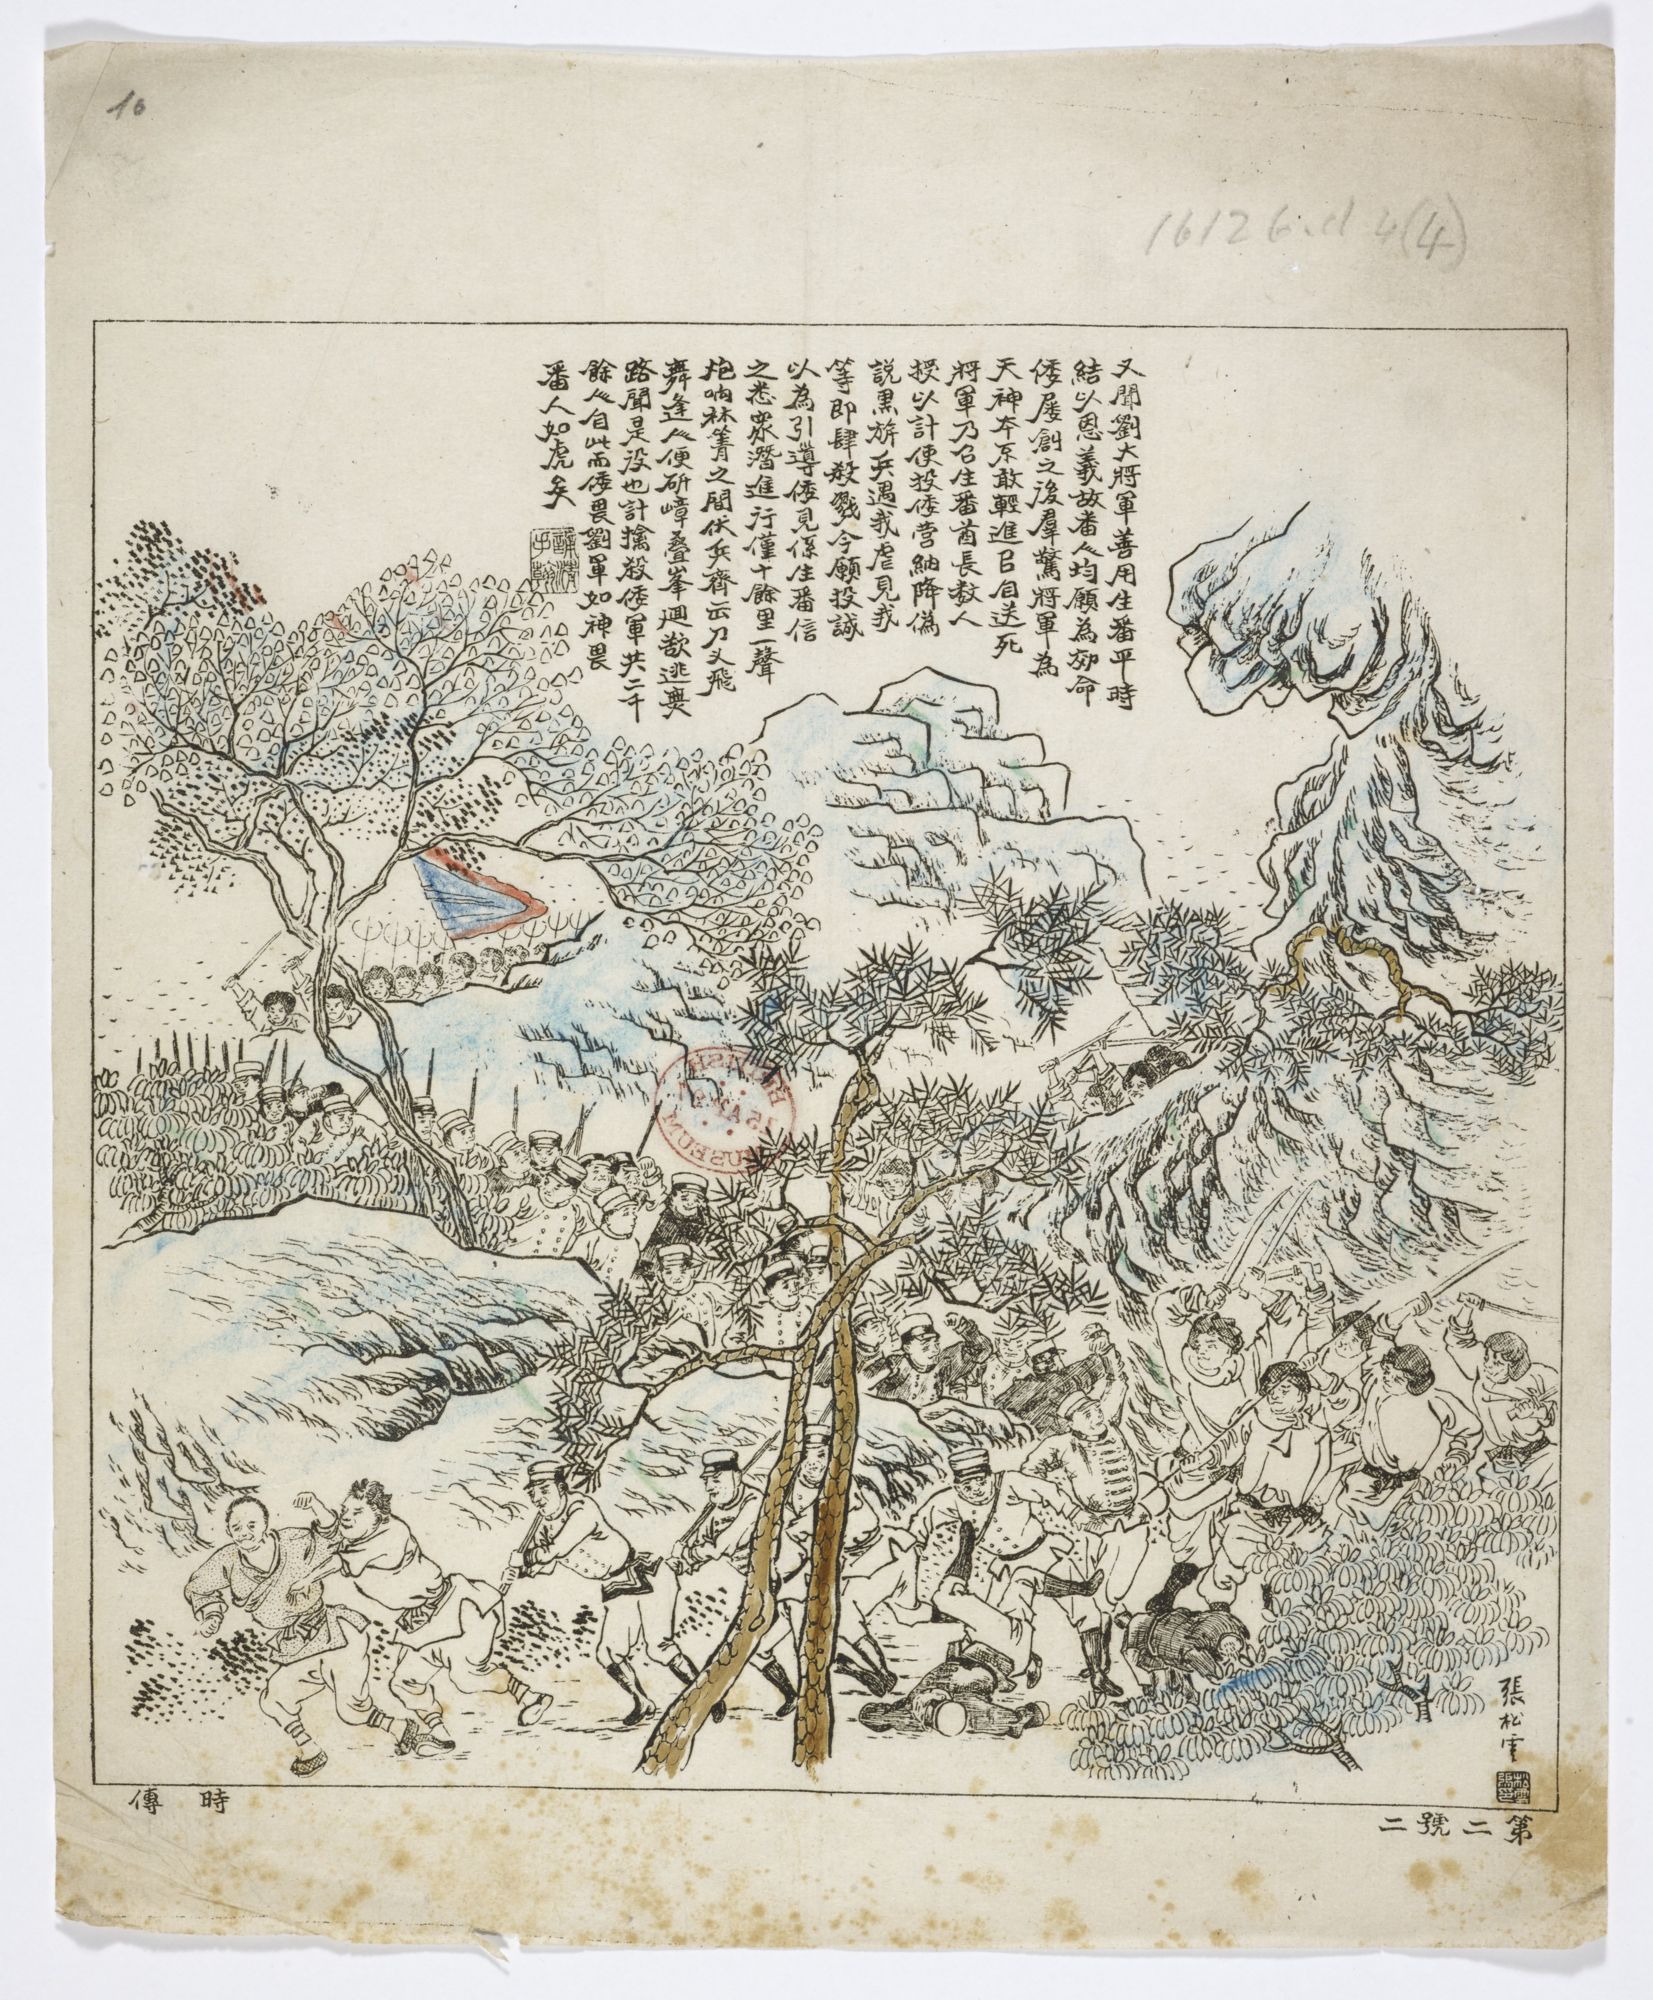 10
16126.d 4(4)
又聞劉大將軍善用生番平時
結以恩義故番人均願為効命
倭屡創之後羣驚將軍為
天神本不敢輕進自送死
將軍乃召生番酋長数人
授以計使投倭营納降偽
説黒旂兵遇我虐見我
等即肆殺戮今願投誠
以為引導倭見係生番信
之悉眾潛進行僅十餘里一聲
炮响林箐之間伏兵齊出刀叉飛
舞逢人便斫嶂叠峯迴欲逃無
路聞是役也計擒殺倭軍共二千
餘人自此而倭畏劉軍如神畏
番人如虎矣
張松雲
時傳
第二號二
BRITISH MUSEUM